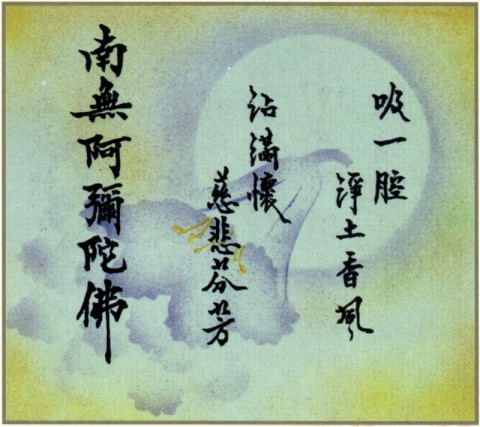 吸一腔
淨土香風
沾滿懷
慈悲芬芳
南無阿彌陀佛